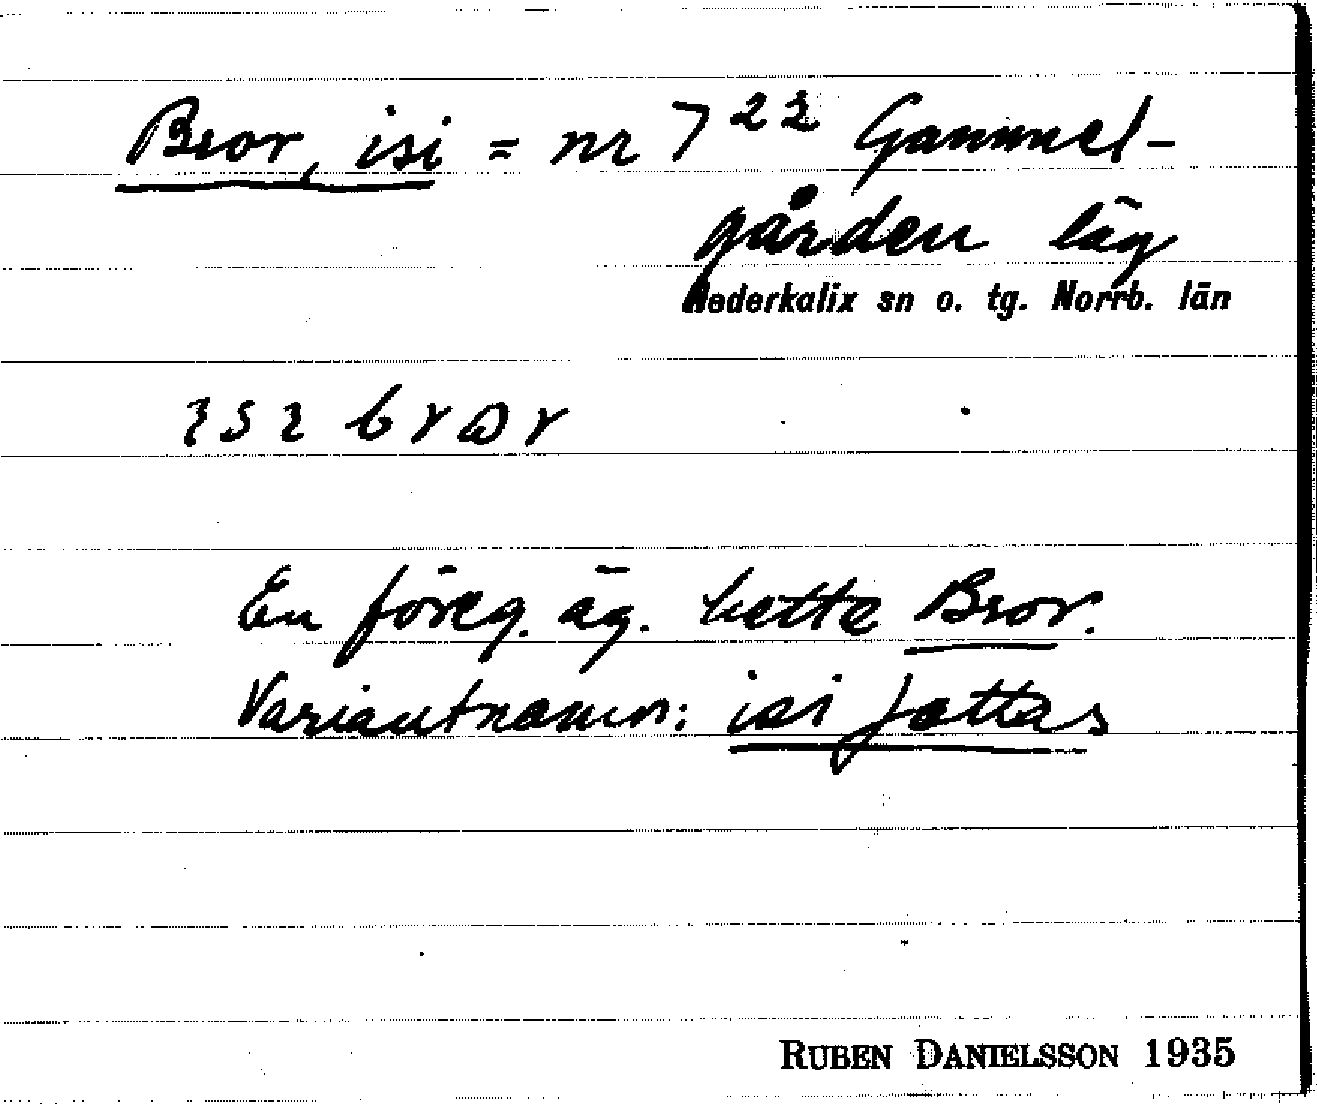 Bror, isi = nr 7²² Gammel-
gården läg
Nederkalix sn o. tg. Norrb. län
En föreg. äg. hette Bror.
Variantnamn: isi jottas
RUBEN DANIELSSON 1935